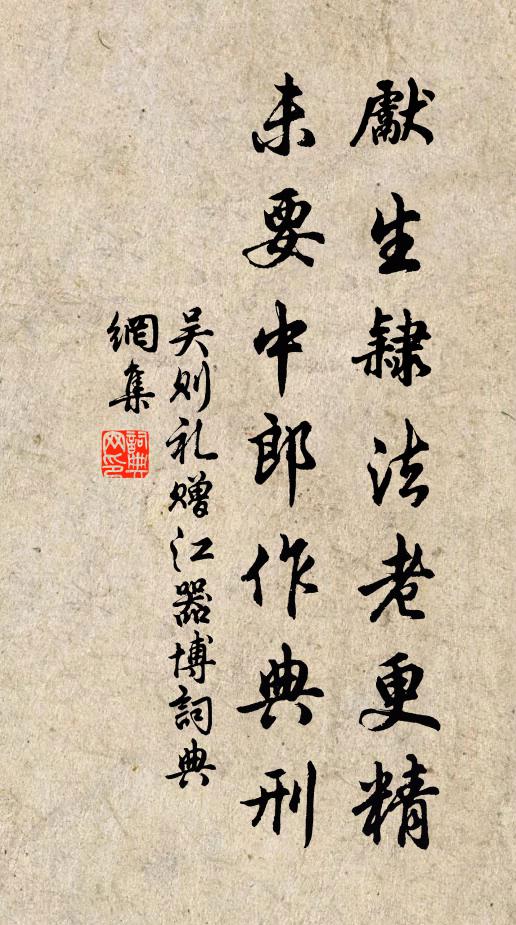 獻生隸法老更精
未要中郎作典刑
吴则礼赠江器博詞典
網集
詞典
网印